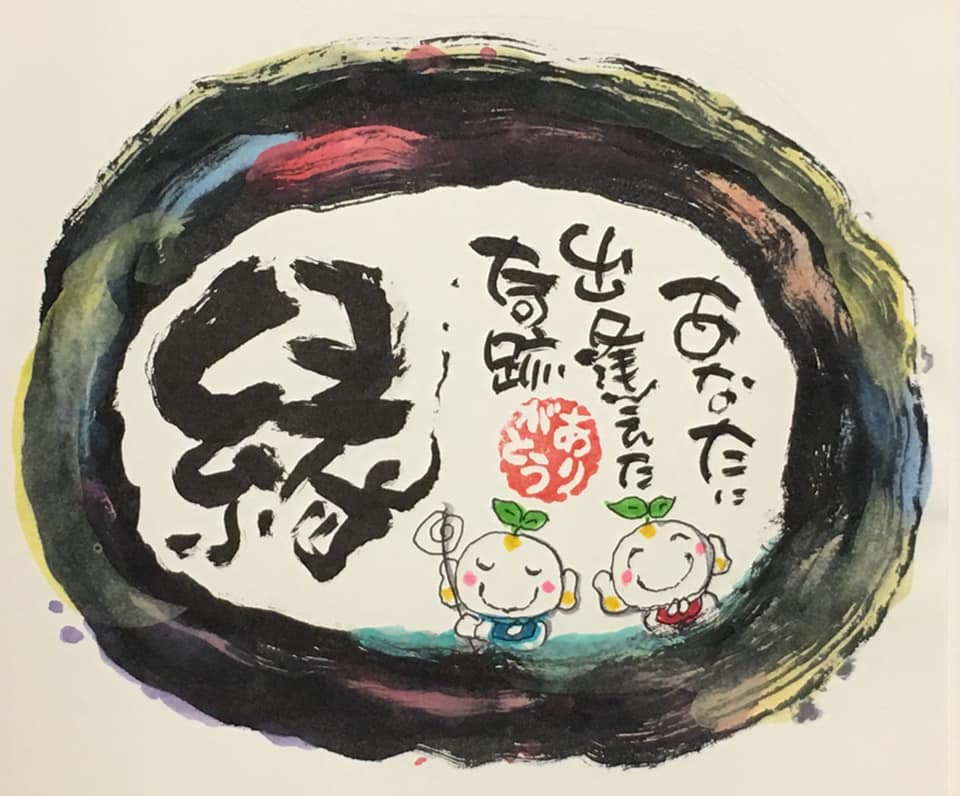 あなたに
出逢えた
奇跡
あり
がとう
縁